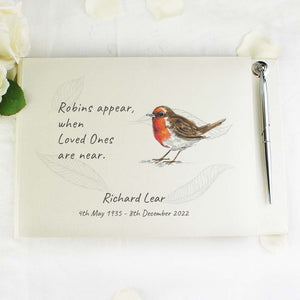 Robins appear,
when
Loved Ones
are near.
Richard Lear
4th May 1935 - 8th December 2022